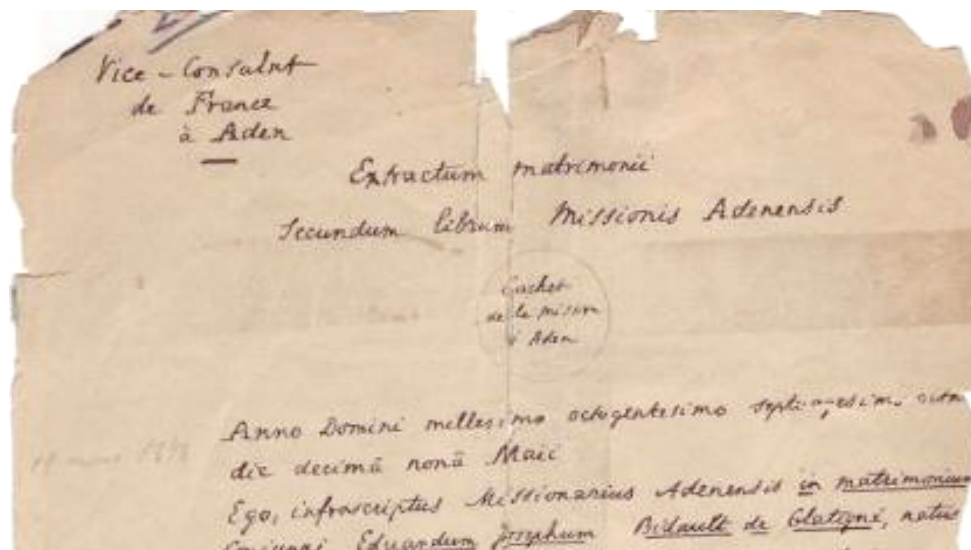 Vice-Consulat
de France
à Aden
Extractum matrimonii
Secundum librum Missionis Adenensis
Cachet
de la Mission
à Aden
Anno Domini millesimo octogentesimo
die decimâ nonâ Maii
Ego, infrascriptus Missionarius Adenensis in matrimonium
Eduardum Josephum Bidault de Glatigné, natus